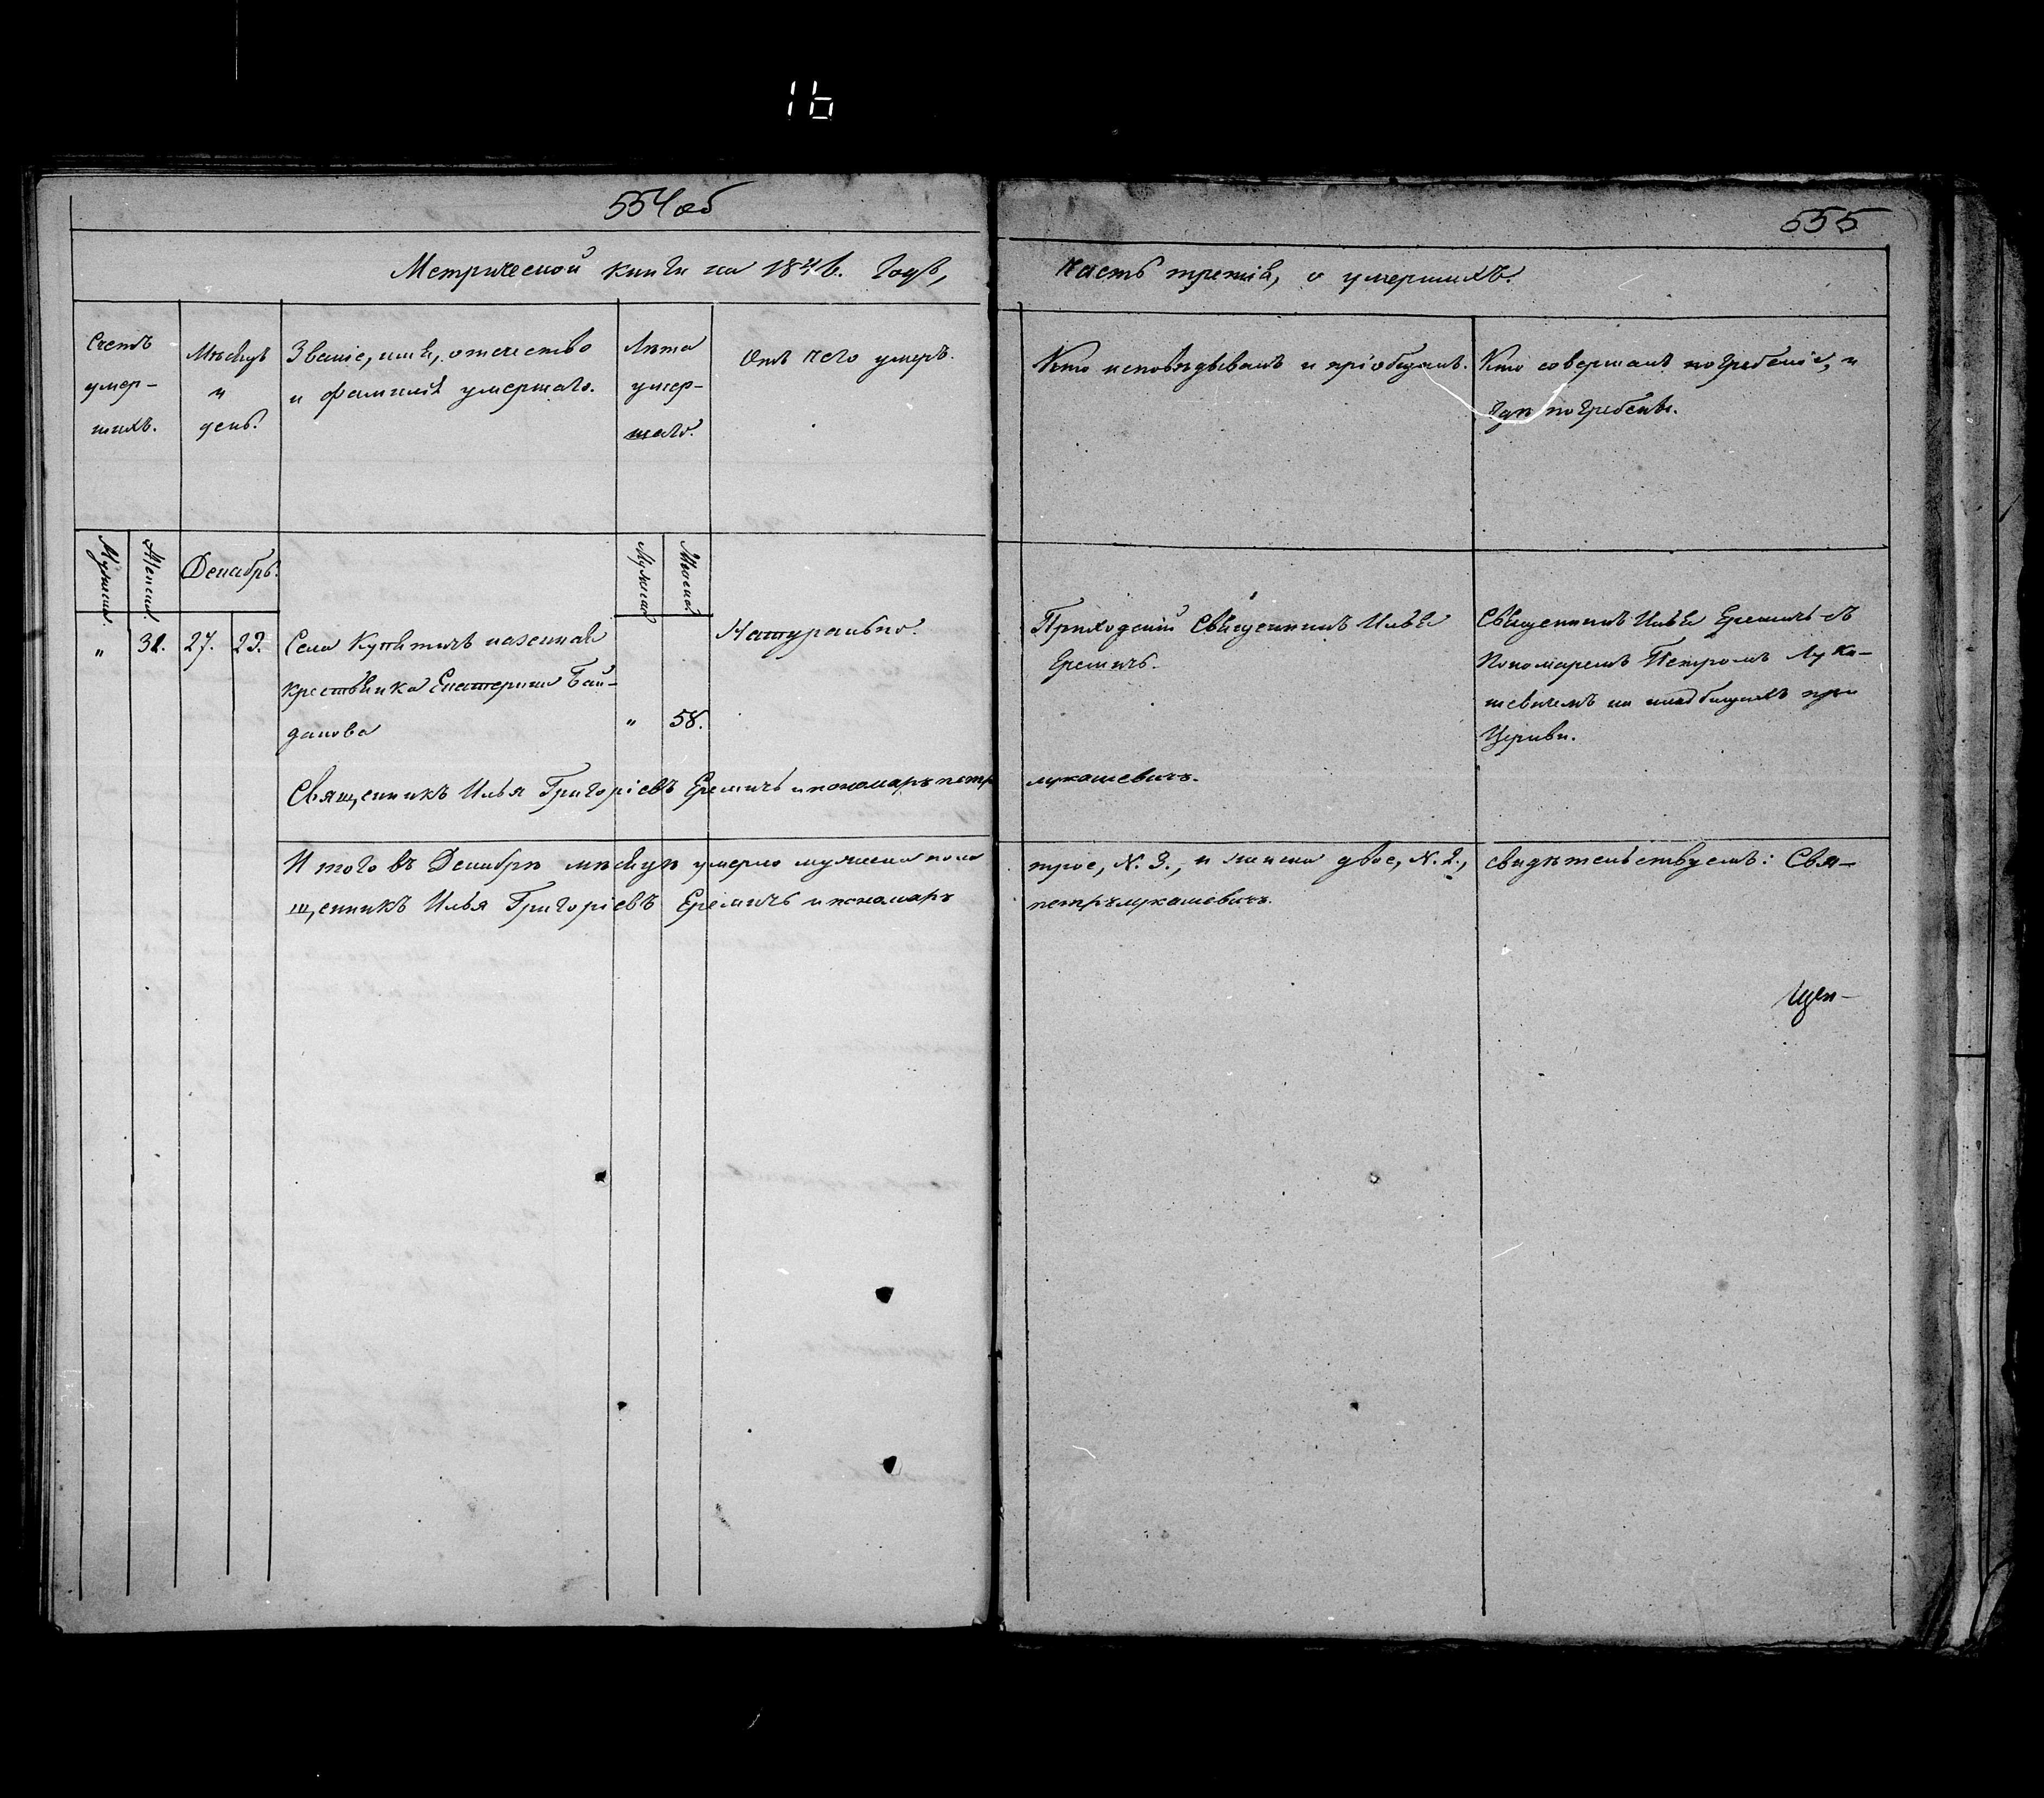 16
554 об
555
Метрической книги на 1846. Годъ,
Часть третія, о умершихъ.
Счетъ
умер-
шихъ.
Мѣсяцъ
и
день.
Званіе, имя, отечество
и фамилія умершаго.
Лѣта
умер-
шаго.
Отъ чего умеръ.
Кто исповѣдывалъ и пріобщалъ.
Кто совершалъ погребеніе, и
гдѣ погребены.
Мужеска.
Женска.
Декабрь.
Мужеска
Женска.
" 31. 27. 29.
Села казенная
крестьянка Екатерина Бай-
данова
" 58.
Натурально.
Приходскій Священникъ Илья
Еремичъ.
Священникъ Илья Еремичъ съ
Пономаремъ Петромъ Лука-
шевичемъ на кладбищахъ при
Церкви.
Священникъ Илья Григоріевъ Еремичъ и пономарь петръ лукашевичъ.
Итого въ Декабрѣ мѣсяцѣ умерло мужеска пола трое, N. 3., и женска двое, N. 2., свидѣтельствуемъ: Свя-
щенникъ Илья Григоріевъ Еремичъ и пономарь петръ лукашевичъ.